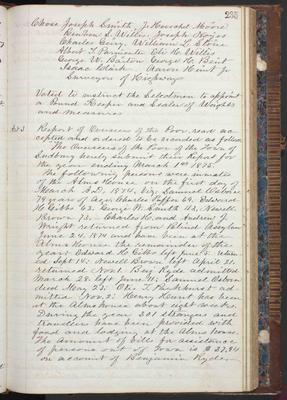 235
Chose Joseph Smith, J. Howard Moore
Reuben S. Willis, Joseph
Charles William L. Stone
Albert T. Parmenter Eli H. Willis
George W. Barton George H. Bent
Isaac Clark Aaron Hunt Jr
Surveyors of Highways
Voted to instruct the Selectmen to appoint
a Pound Keeper and Sealer of Weights
and Measures
Report of Overseers of the Poor, read ac-
cepted and ordered to be recorded as follows
The Overseers of the Poor of the Town of
Sudbury hereby submit their Report for
the year ending March 1st 1875.
The following persons were inmates
of the Alms House on the first day of
March A.D. 1874, Viz. Samuel Osborn
79 years of age, Charles Puffer 64. Edward
H. Gibbs 63. George W. Smith Newell
Brown 73. Charles H. and Andrew J.
Wright returned from Blind Asylum
June 24. 1874 and have been at the
Alms House the remainder of the
year. Edward H. Gibbs left June 5.
Sept 14. Newell Brown left April 21.
returned Nov. 1. Benj. Ryde admitted
March 28. left June 11. Samuel Osborn
died May 23. Otis T. Parkhurst ad-
mitted Nov. 2. Henry Hunt has been
at the Alms house about eight weeks.
During the year 301 strangers and
travellers have been provided with
food and lodging at the Alms house.
The amount of bills for assistance
of persons out of Town is $37,84
on account of Benjamin Ryder